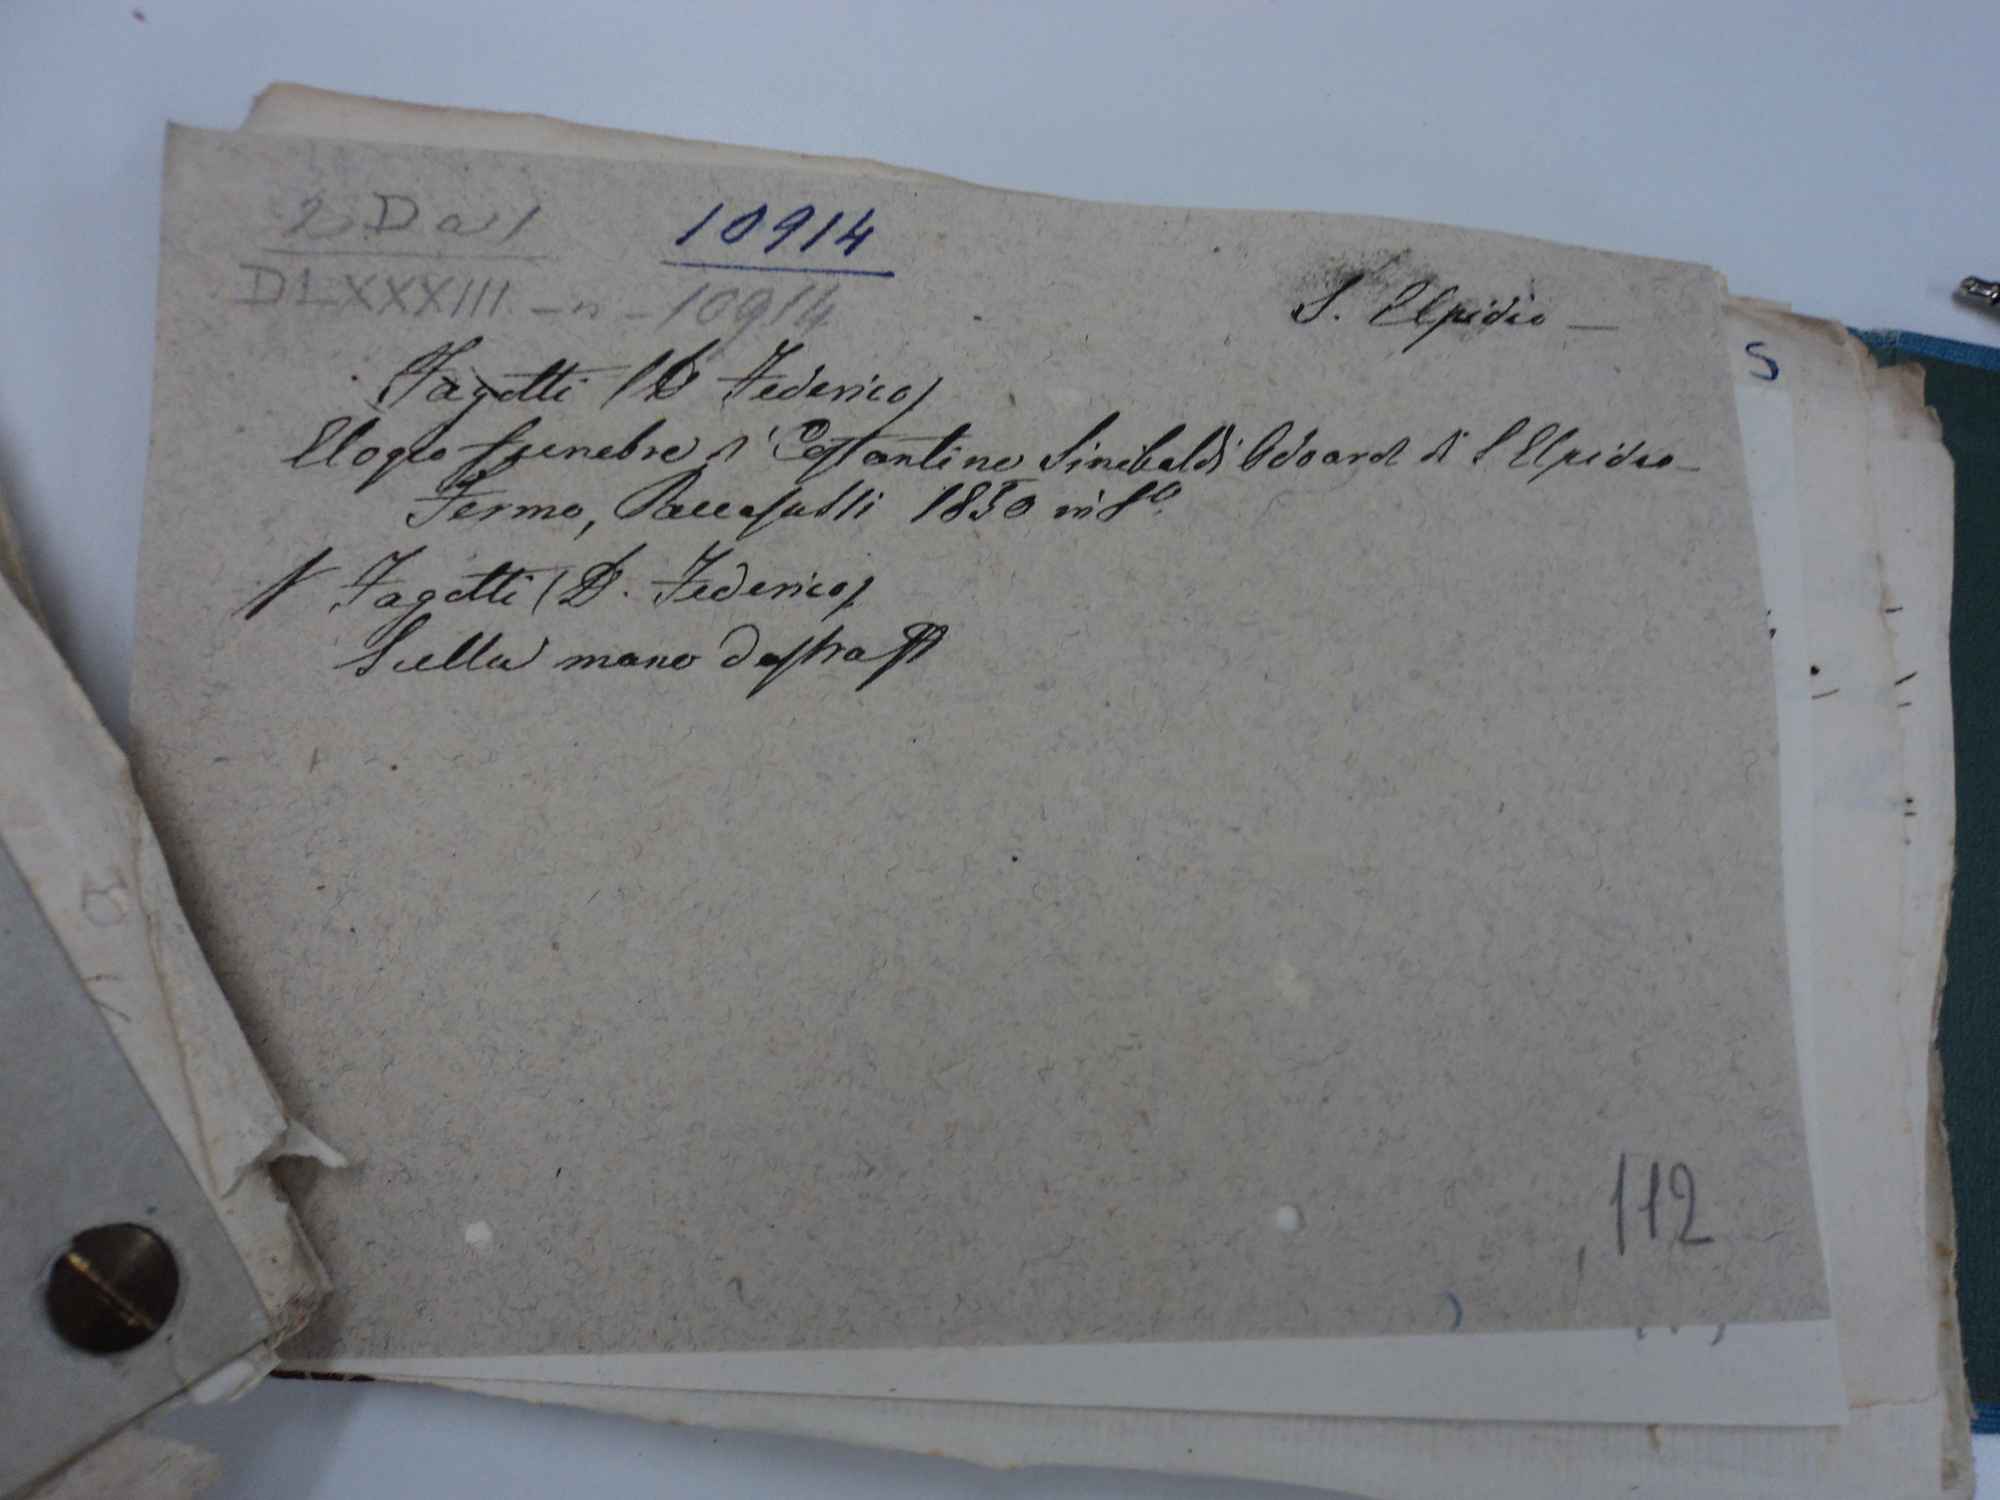 10914
DLXXXIII - n - 10914
S. Elpidio —
Fagotti (D. Federico)
Elogio funebre di Costantino Sinibaldi Odoardi di S Elpidio
Fermo, Paccasassi 1850 in 8°
Fagotti (D. Federico)
Sulla mano destra
112
S